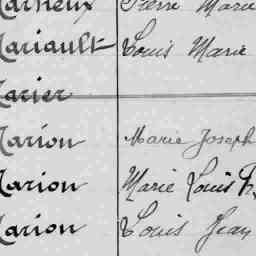 Mathieux Pierre Marie
Mariault Louis Marie
Marier
Marion Marie Joseph
Marion Marie Louis
Marion Louis Jean